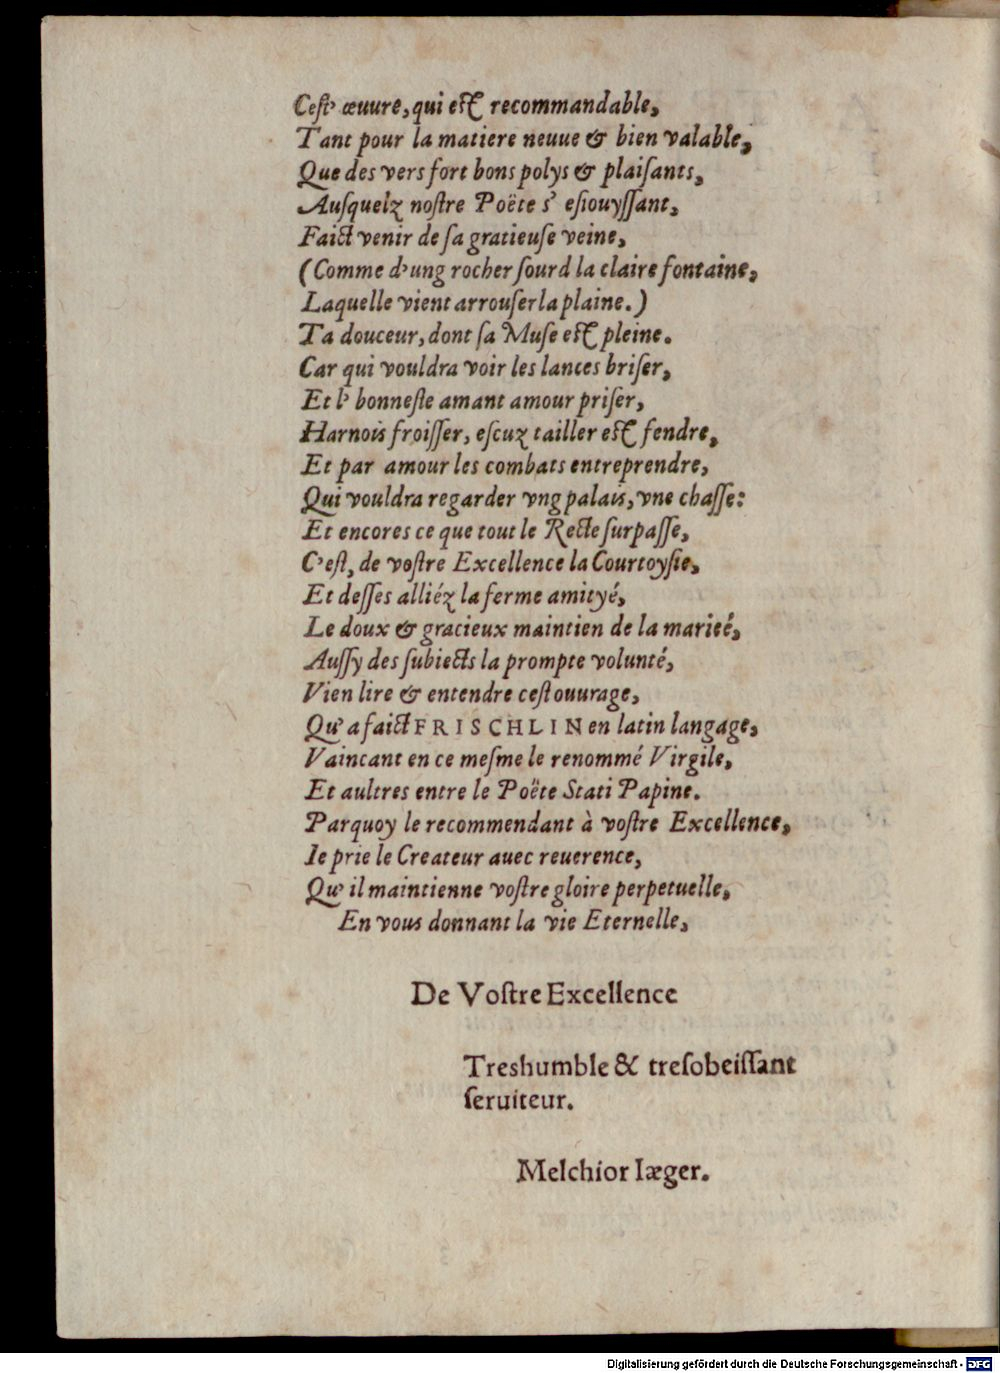 Cest' œuure, qui est recommandable,
Tant pour la matiere neuue & bien valable,
Que des vers fort bons polys & plaiſants,
Auſquelz noſtre Poëte s' eſiouyſſant,
Faict venir de ſa gratieuſe veine,
(Comme d'ung rocher ſourd la claire fontaine,
Laquelle vient arrouſer la plaine.)
Ta douceur, dont ſa Muſe est pleine.
Car qui vouldra voir les lances briſer,
Et l' bonneſte amant amour priſer,
Harnois froiſſer, eſcuz tailler est fendre,
Et par amour les combats entreprendre,
Qui vouldra regarder vng palais, vne chaſſe:
Et encores ce que tout le Recte ſurpaſſe,
C'eſt, de voſtre Excellence la Courtoyſie,
Et deſſes alliéz la ferme amityé,
Le doux & gracieux maintien de la marieé,
Auſſy des ſubiects la prompte volunté,
Vien lire & entendre ceſt ouurage,
Qu' a faict FRISCHLIN en latin langage,
Vaincant en ce meſme le renommé Virgile,
Et aultres entre le Poëte Stati Papine.
Parquoy le recommendant à voſtre Excellence,
Ie prie le Createur auec reuerence,
Qu' il maintienne voſtre gloire perpetuelle,
En vous donnant la vie Eternelle,
De Voſtre Excellence
Treshumble & treſobeiſſant
ſeruiteur.
Melchior Iæger.
Digitalisierung gefördert durch die Deutsche Forschungsgemeinschaft - DFG